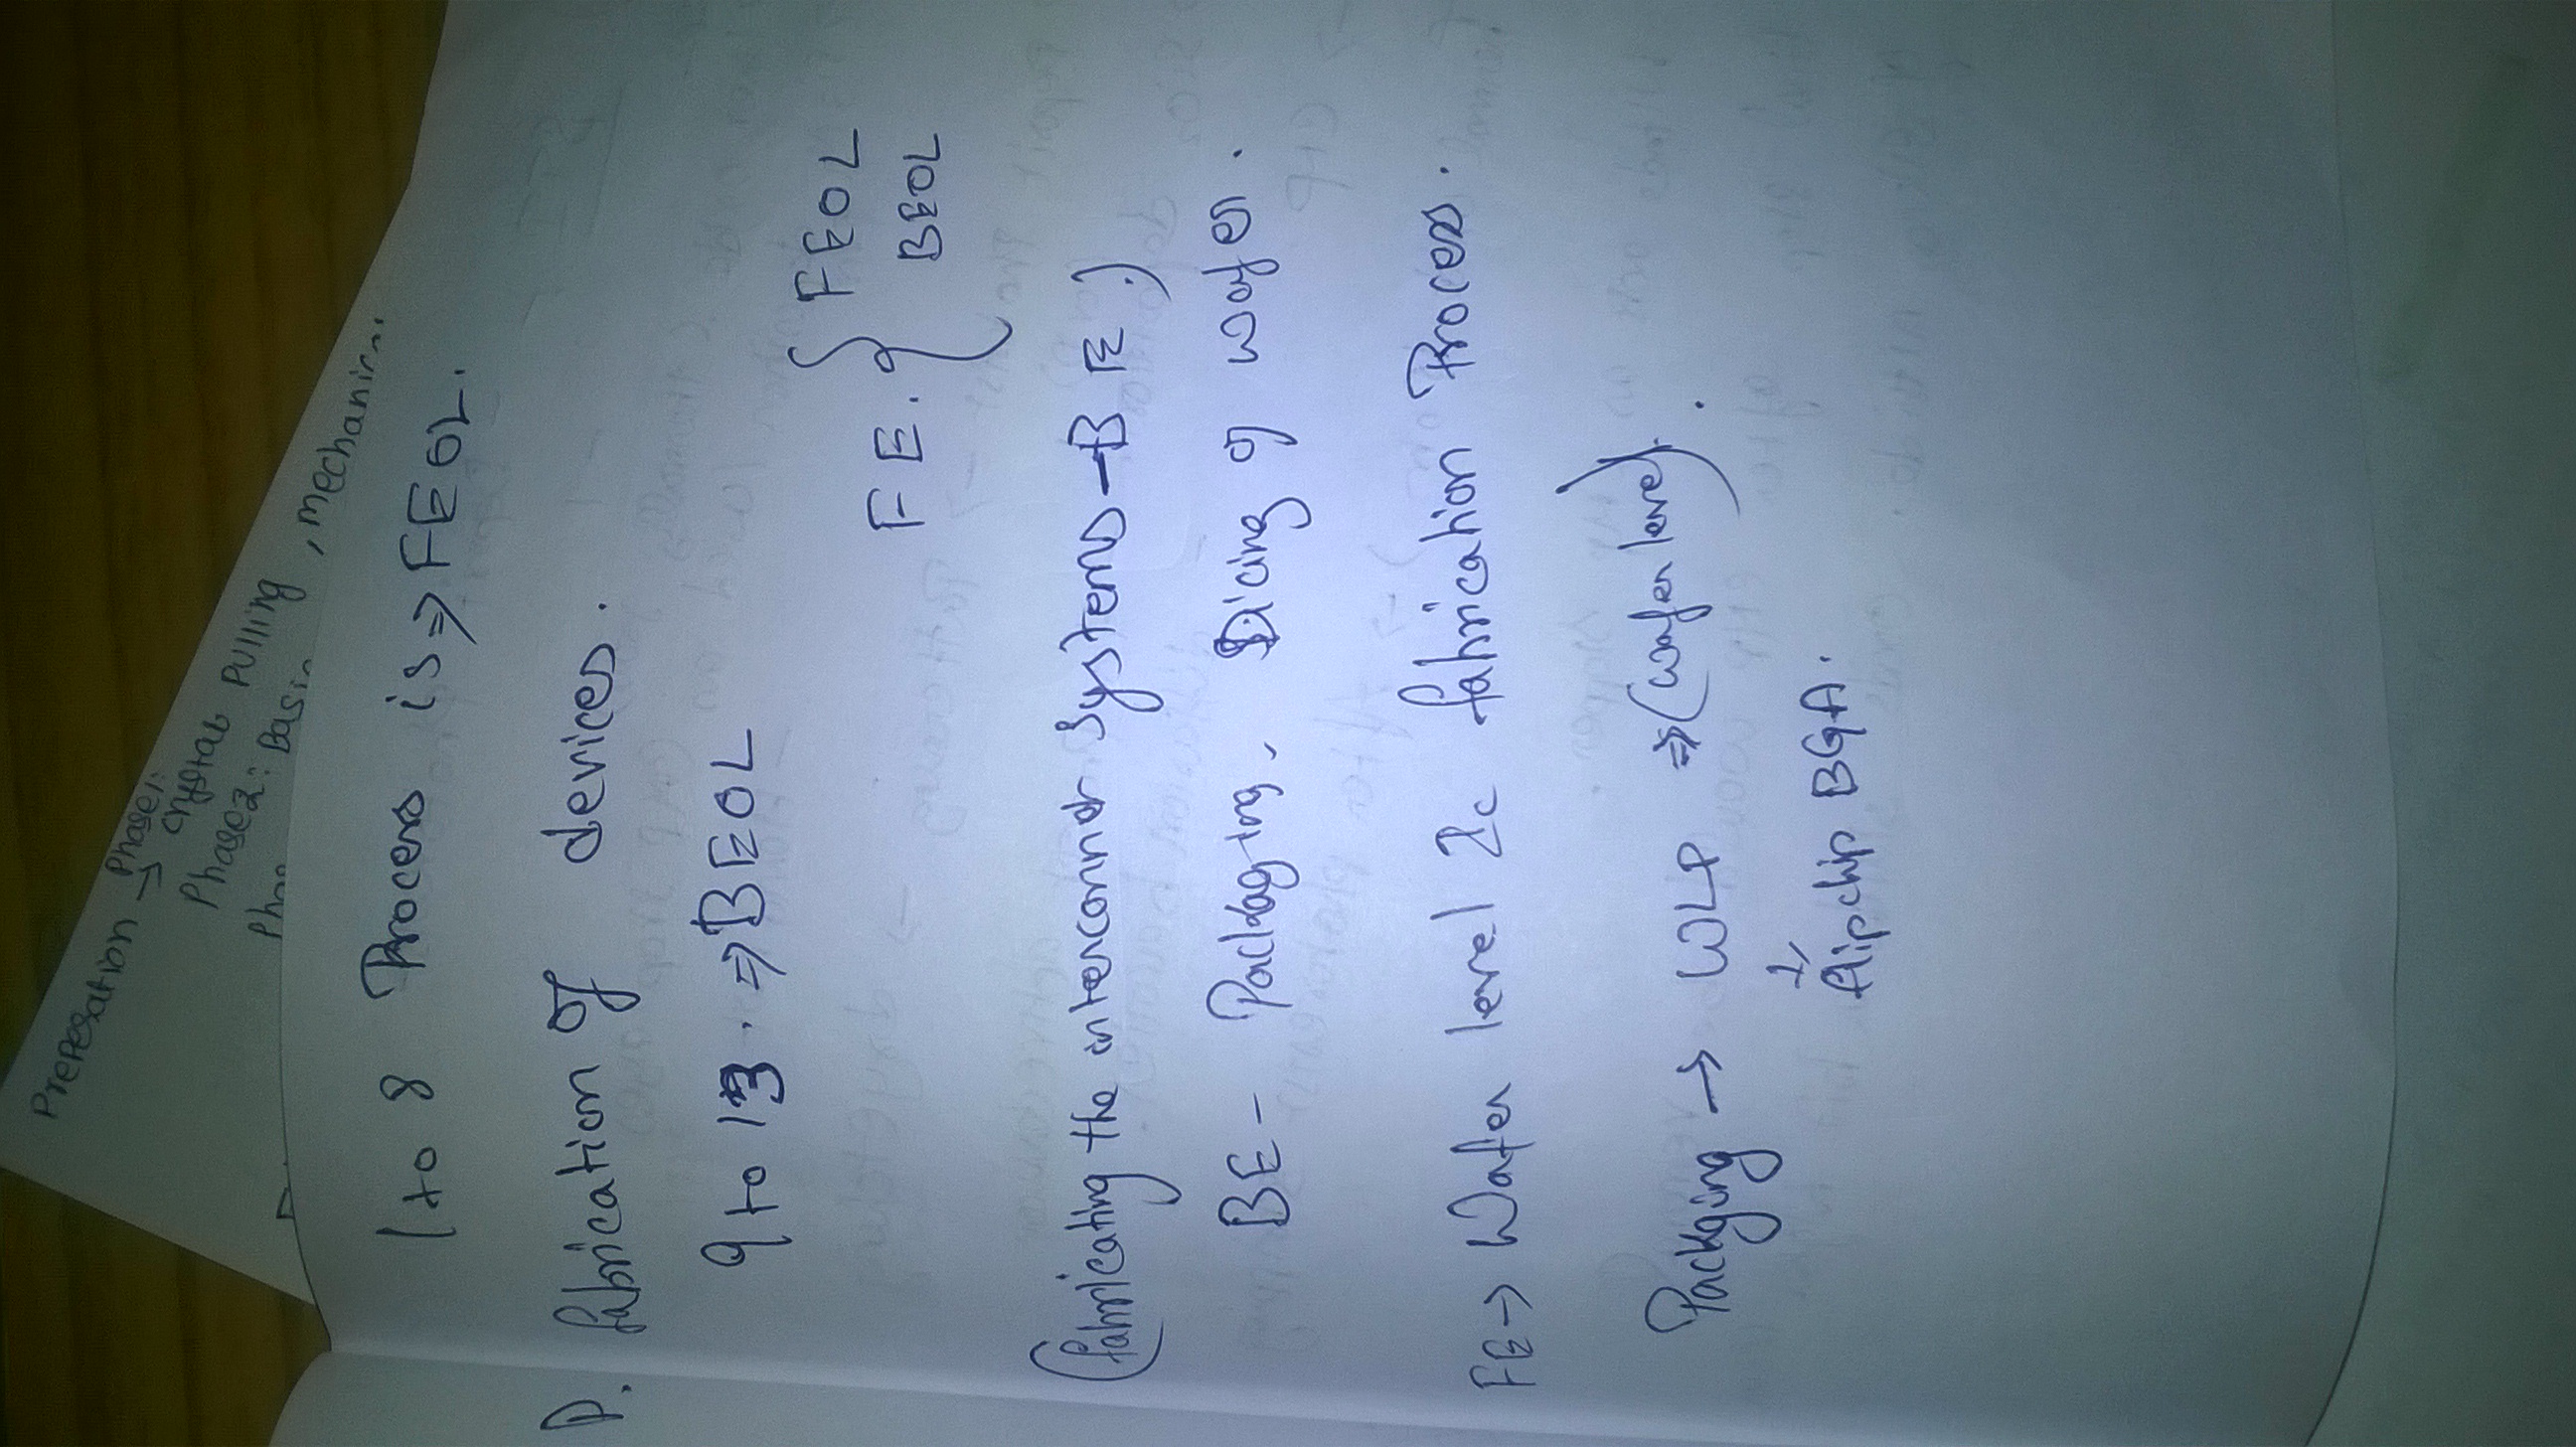 Preperation → Phase1:
crystal Pulling, mechanical
Phase2: Basic
Phas
1 to 8 Process is ⇒ FEOL.
P. fabrication of devices.
9 to 13. ⇒ BEOL
FE. { FEOL
BEOL
(fabricating the interconnet Systems - BE.)
BE - Packaging, Dicing of wafer.
FE → Wafer level Ic fabrication Process.
Packging → WLP ⇒ (wafer level).
flipchip BGA.